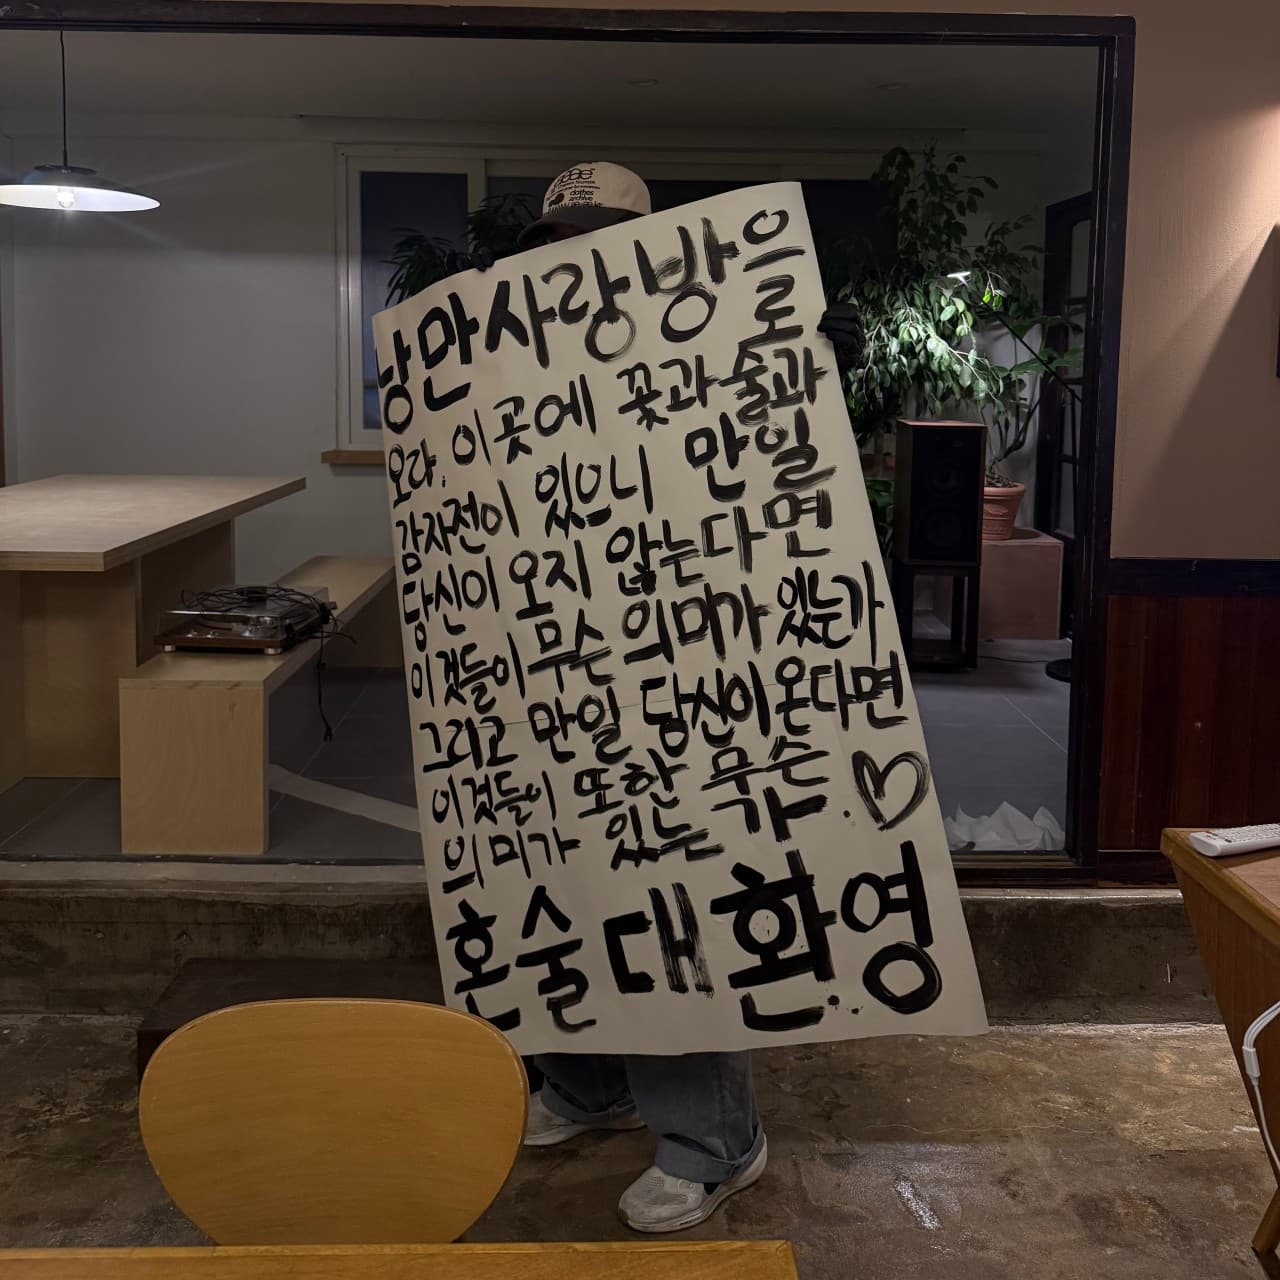 clothes
archive
낭만사랑방으로
오라, 이곳에 꽃과 술과
감자전이 있으니 만일
당신이 오지 않는다면
이것들이 무슨 의미가 있는가
그리고 만일 당신이 온다면
이것들이 또한 무슨
의미가 있는가.
혼술대환영